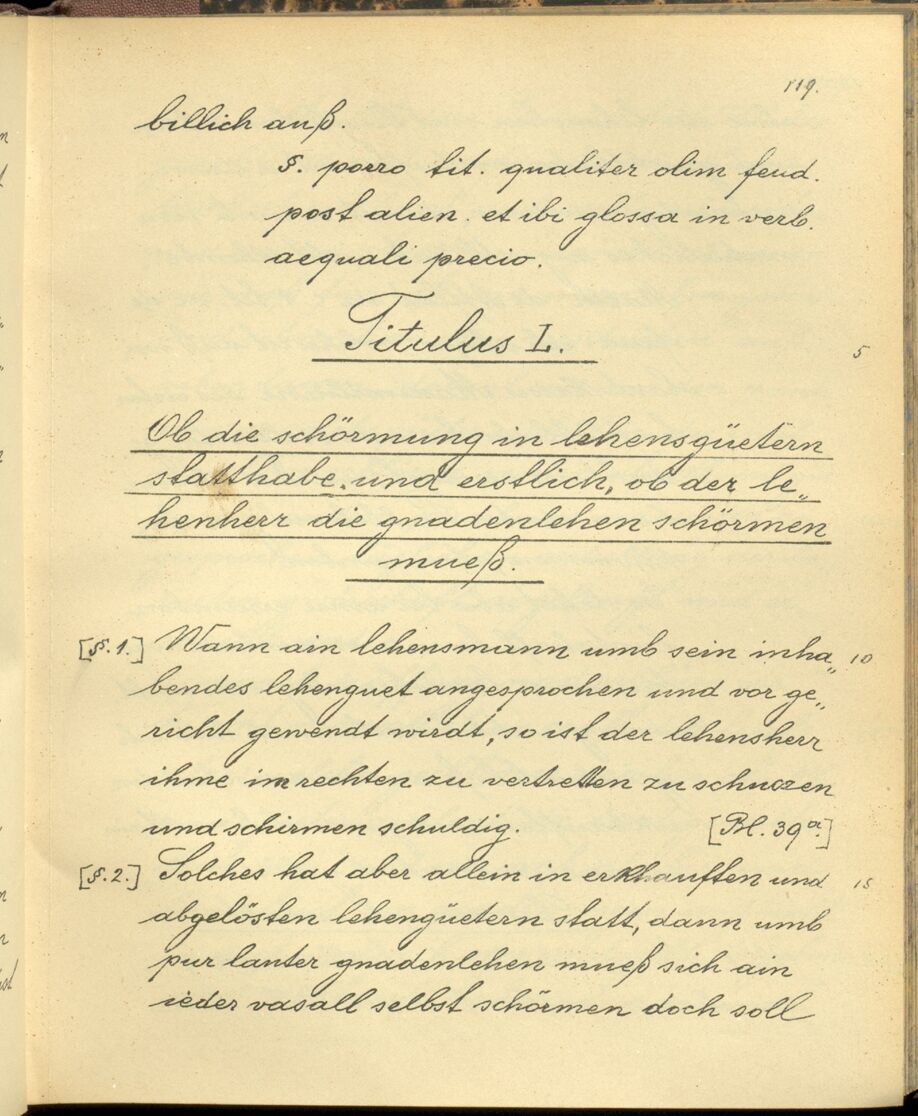 119.
billich auß.
§. porro tit. qualiter olim feud.
post alien. et ibi glossa in verb.
aequali precio.
Titulus L.
5
Ob die schörmung in lehensgüetern
statthabe. und erstlich, ob der le„
henherr die gnadenlehen schörmen
mueß.
[§. 1.] Wann ain lehensmann umb sein inha„ 10
bendes lehenguet angesprochen und vor ge„
richt gewendt wirdt, so ist der lehensherr
ihme im rechten zu vertretten zu schuzen
und schirmen schuldig. [Bl. 39a.]
[§. 2.] Solches hat aber allein in erkhaufften und 15
abgelösten lehengüetern statt, dann umb
pur lauter gnadenlehen mueß sich ain
ieder vasall selbst schörmen doch soll